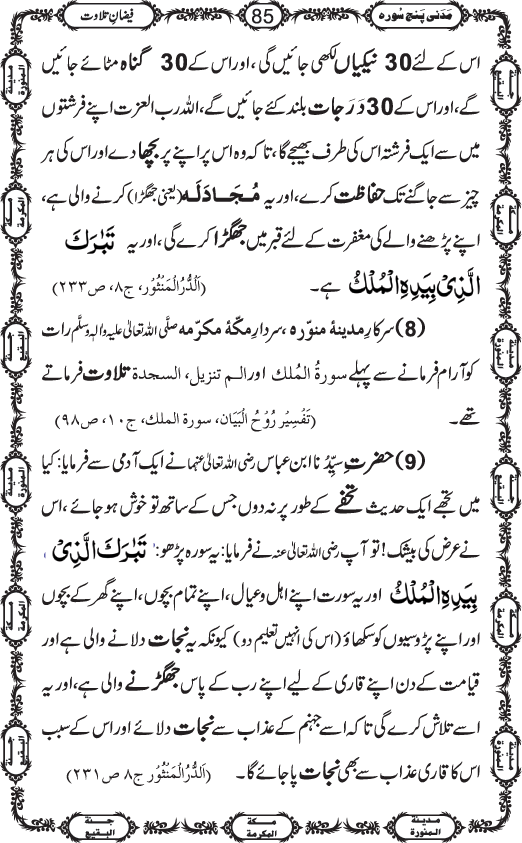 مَدَنی پنج سُورہ
85
فیضانِ تلاوت
اس کے لئے 30 نیکیاں لکھی جائیں گی، اور اس کے 30 گناہ مٹائے جائیں
گے، اور اس کے 30 دَرَجات بلند کئے جائیں گے، اللہ رب العزت اپنے فرشتوں
میں سے ایک فرشتہ اس کی طرف بھیجے گا، تاکہ وہ اس پر اپنے پر بچھا دے اور اس کی ہر
چیز سے جاگنے تک حفاظت کرے، اور یہ مُجادَلَہ (یعنی جھگڑا) کرنے والی ہے،
اپنے پڑھنے والے کی مغفرت کے لئے قبر میں جھگڑا کرے گی، اور یہ تَبٰرَكَ
الَّذِیْ بِیَدِهِ الْمُلْكُ ہے۔ (اَلدُّرُالْمَنْثُوْر، ج۸، ص۲۳۳)
(8) سرکارِ مدینۂ منوّرہ، سردارِ مکّۂ مکرّمہ صلَّی اللہ تعالٰی علیہ واٰلہٖ وسلَّم رات
کو آرام فرمانے سے پہلے سورۃُ المُلک اور الٓـمٓ تنزیل، السجدۃ تلاوت فرماتے
تھے۔ (تَفْسِیْر رُوْحُ الْبَیَان، سورۃ الملک، ج۱۰، ص۹۸)
(9) حضرتِ سیِّدُنا ابن عباس رضی اللہ تعالٰی عنہما نے ایک آدمی سے فرمایا: کیا
میں تجھے ایک حدیث تحفے کے طور پر نہ دوں جس کے ساتھ تو خوش ہو جائے، اس
نے عرض کی بیشک! تو آپ رضی اللہ تعالٰی عنہ نے فرمایا: یہ سورہ پڑھو: تَبٰرَكَ الَّذِیْ
بِیَدِهِ الْمُلْكُ اور یہ سورت اپنے اہل و عیال، اپنے تمام بچوں، اپنے گھر کے بچوں
اور اپنے پڑوسیوں کو سکھاؤ (اس کی انہیں تعلیم دو) کیونکہ یہ نجات دلانے والی ہے اور
قیامت کے دن اپنے قاری کے لیے اپنے رب کے پاس جھگڑنے والی ہے، اور یہ
اسے تلاش کرے گی تاکہ اسے جہنم کے عذاب سے نجات دلائے اور اس کے سبب
اس کا قاری عذاب سے بھی نجات پا جائے گا۔ (اَلدُّرُالْمَنْثُوْر ج۸ ص۲۳۱)
مدینۃ المنورۃ
مکۃ المکرمۃ
جنۃ البقیع